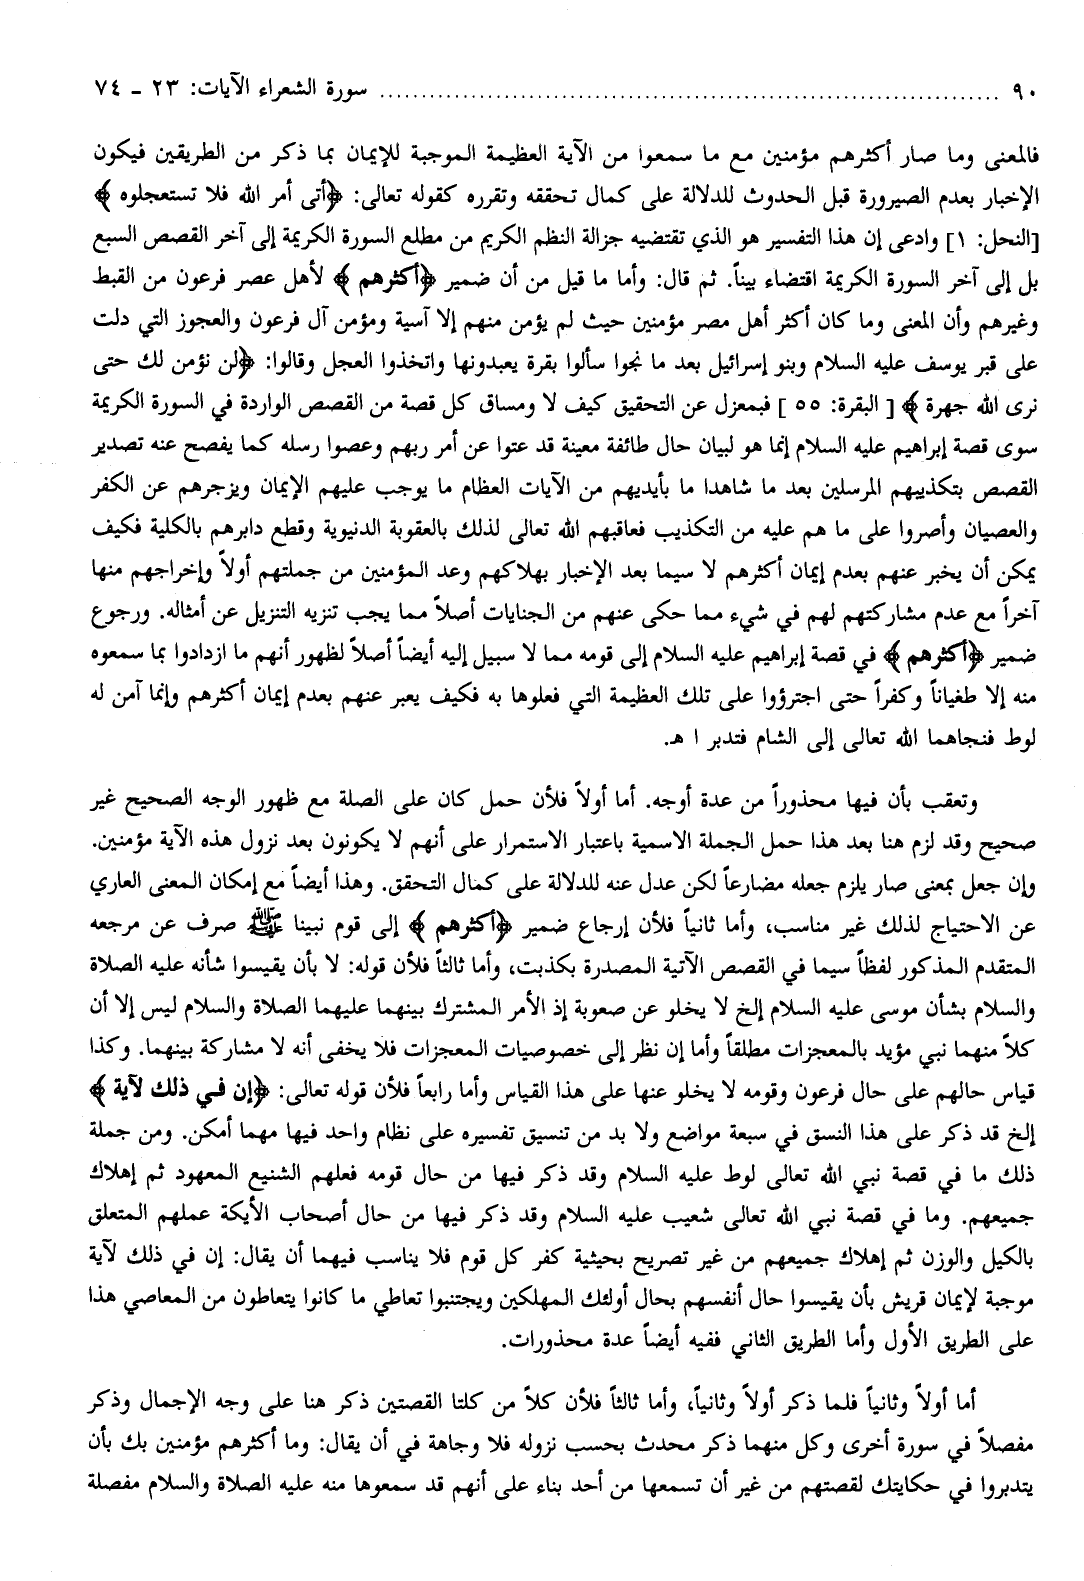 ٩٠ ........................................................................ سورة الشعراء الآيات: ٢٣ ـ ٧٤
فالمعنى وما صار أكثرهم مؤمنين مع ما سمعوا من الآية العظيمة الموجبة للإيمان بما ذكر من الطريقين فيكون
الإخبار بعدم الصيرورة قبل الحدوث للدلالة على كمال تحققه وتقرره كقوله تعالى: ﴿أتى أمر الله فلا تستعجلوه﴾
[النحل: ١] وادعى إن هذا التفسير هو الذي تقتضيه جزالة النظم الكريم من مطلع السورة الكريمة إلى آخر القصص السبع
بل إلى آخر السورة الكريمة اقتضاء بيناً. ثم قال: وأما ما قيل من أن ضمير ﴿أكثرهم﴾ لأهل عصر فرعون من القبط
وغيرهم وأن المعنى وما كان أكثر أهل مصر مؤمنين حيث لم يؤمن منهم إلا آسية ومؤمن آل فرعون والعجوز التي دلت
على قبر يوسف عليه السلام وبنو إسرائيل بعد ما نجوا سألوا بقرة يعبدونها واتخذوا العجل وقالوا: ﴿لن نؤمن لك حتى
نرى الله جهرة﴾ [البقرة: ٥٥] فبمعزل عن التحقيق كيف لا ومساق كل قصة من القصص الواردة في السورة الكريمة
سوى قصة إبراهيم عليه السلام إنما هو لبيان حال طائفة معينة قد عتوا عن أمر ربهم وعصوا رسله كما يفصح عنه تصدير
القصص بتكذيبهم المرسلين بعد ما شاهدا ما بأيديهم من الآيات العظام ما يوجب عليهم الإيمان ويزجرهم عن الكفر
والعصيان وأصروا على ما هم عليه من التكذيب فعاقبهم الله تعالى لذلك بالعقوبة الدنيوية وقطع دابرهم بالكلية فكيف
يمكن أن يخبر عنهم بعدم إيمان أكثرهم لا سيما بعد الإخبار بهلاكهم وعد المؤمنين من جملتهم أولاً وإخراجهم منها
آخراً مع عدم مشاركتهم لهم في شيء مما حكى عنهم من الجنايات أصلاً مما يجب تنزيه التنزيل عن أمثاله. ورجوع
ضمير ﴿أكثرهم﴾ في قصة إبراهيم عليه السلام إلى قومه مما لا سبيل إليه أيضاً أصلاً لظهور أنهم ما ازدادوا بما سمعوه
منه إلا طغياناً وكفراً حتى اجترؤوا على تلك العظيمة التي فعلوها به فكيف يعبر عنهم بعدم إيمان أكثرهم وإنما آمن له
لوط فنجاهما الله تعالى إلى الشام فتدبر ا هـ.
وتعقب بأن فيها محذوراً من عدة أوجه. أما أولاً فلأن حمل كان على الصلة مع ظهور الوجه الصحيح غير
صحيح وقد لزم هنا بعد هذا حمل الجملة الاسمية باعتبار الاستمرار على أنهم لا يكونون بعد نزول هذه الآية مؤمنين.
وإن جعل بمعنى صار يلزم جعله مضارعاً لكن عدل عنه للدلالة على كمال التحقق. وهذا أيضاً مع إمكان المعنى العاري
عن الاحتياج لذلك غير مناسب، وأما ثانياً فلأن إرجاع ضمير ﴿أكثرهم﴾ إلى قوم نبينا ﷺ صرف عن مرجعه
المتقدم المذكور لفظاً سيما في القصص الآتية المصدرة بكذبت، وأما ثالثاً فلأن قوله: لا بأن يقيسوا شأنه عليه الصلاة
والسلام بشأن موسى عليه السلام إلخ لا يخلو عن صعوبة إذ الأمر المشترك بينهما عليهما الصلاة والسلام ليس إلا أن
كلاً منهما نبي مؤيد بالمعجزات مطلقاً وأما إن نظر إلى خصوصيات المعجزات فلا يخفى أنه لا مشاركة بينهما. وكذا
قياس حالهم على حال فرعون وقومه لا يخلو عنها على هذا القياس وأما رابعاً فلأن قوله تعالى: ﴿إن في ذلك لآية﴾
إلخ قد ذكر على هذا النسق في سبعة مواضع ولا بد من تنسيق تفسيره على نظام واحد فيها مهما أمكن. ومن جملة
ذلك ما في قصة نبي الله تعالى لوط عليه السلام وقد ذكر فيها من حال قومه فعلهم الشنيع المعهود ثم إهلاك
جميعهم. وما في قصة نبي الله تعالى شعيب عليه السلام وقد ذكر فيها من حال أصحاب الأيكة عملهم المتعلق
بالكيل والوزن ثم إهلاك جميعهم من غير تصريح بحيثية كفر كل قوم فلا يناسب فيهما أن يقال: إن في ذلك لآية
موجبة لإيمان قريش بأن يقيسوا حال أنفسهم بحال أولئك المهلكين ويجتنبوا تعاطي ما كانوا يتعاطون من المعاصي هذا
على الطريق الأول وأما الطريق الثاني ففيه أيضاً عدة محذورات.
أما أولاً وثانياً فلما ذكر أولاً وثانياً، وأما ثالثاً فلأن كلاً من كلتا القصتين ذكر هنا على وجه الإجمال وذكر
مفصلاً في سورة أخرى وكل منهما ذكر محدث بحسب نزوله فلا وجاهة في أن يقال: وما أكثرهم مؤمنين بك بأن
يتدبروا في حكايتك لقصتهم من غير أن تسمعها من أحد بناء على أنهم قد سمعوها منه عليه الصلاة والسلام مفصلة